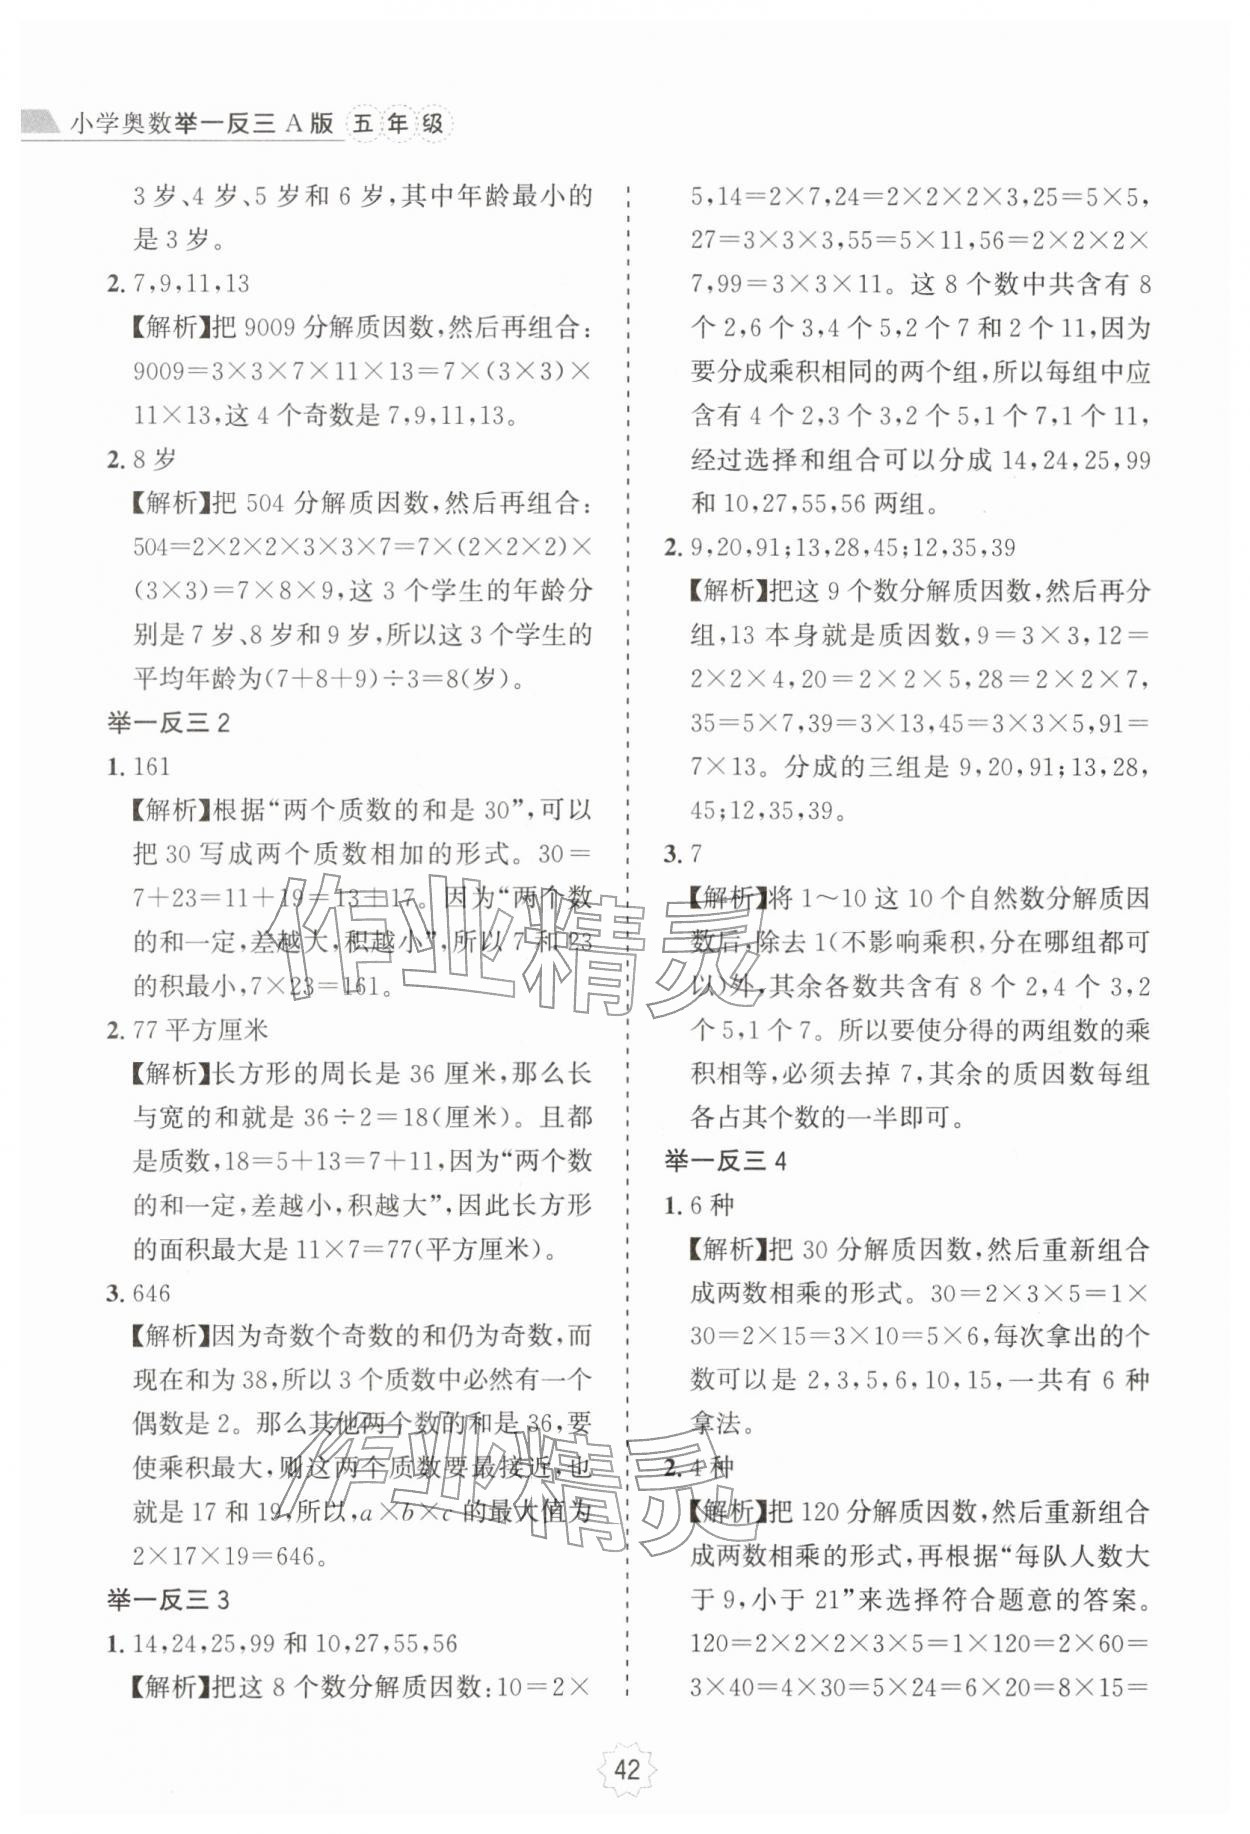 小学奥数举一反三 A 版 五年级
3 岁、4 岁、5 岁和 6 岁，其中年龄最小的
是 3 岁。
2. 7,9,11,13
【解析】把 9009 分解质因数，然后再组合：
9009=3×3×7×11×13=7×(3×3)×
11×13，这 4 个奇数是 7,9,11,13。
2. 8 岁
【解析】把 504 分解质因数，然后再组合：
504=2×2×2×3×3×7=7×(2×2×2)×
(3×3)=7×8×9，这 3 个学生的年龄分
别是 7 岁、8 岁和 9 岁，所以这 3 个学生的
平均年龄为(7+8+9)÷3=8(岁)。
举一反三 2
1. 161
【解析】根据“两个质数的和是 30”，可以
把 30 写成两个质数相加的形式。30=
7+23=11+19=13+17。因为“两个数
的和一定，差越大，积越小”，所以 7 和 23
的积最小，7×23=161。
2. 77 平方厘米
【解析】长方形的周长是 36 厘米，那么长
与宽的和就是 36÷2=18(厘米)。且都
是质数，18=5+13=7+11，因为“两个数
的和一定，差越小，积越大”，因此长方形
的面积最大是 11×7=77(平方厘米)。
3. 646
【解析】因为奇数个奇数的和仍为奇数，而
现在和为 38，所以 3 个质数中必然有一个
偶数是 2。那么其他两个数的和是 36，要
使乘积最大，则这两个质数要最接近，也
就是 17 和 19，所以，a×b×c 的最大值为
2×17×19=646。
举一反三 3
1. 14,24,25,99 和 10,27,55,56
【解析】把这 8 个数分解质因数：10=2×
5,14=2×7,24=2×2×2×3,25=5×5,
27=3×3×3,55=5×11,56=2×2×2×
7,99=3×3×11。这 8 个数中共含有 8
个 2,6 个 3,4 个 5,2 个 7 和 2 个 11，因为
要分成乘积相同的两个组，所以每组中应
含有 4 个 2,3 个 3,2 个 5,1 个 7,1 个 11，
经过选择和组合可以分成 14,24,25,99
和 10,27,55,56 两组。
2. 9,20,91;13,28,45;12,35,39
【解析】把这 9 个数分解质因数，然后再分
组，13 本身就是质因数，9=3×3,12=
2×2×4,20=2×2×5,28=2×2×7,
35=5×7,39=3×13,45=3×3×5,91=
7×13。分成的三组是 9,20,91;13,28,
45;12,35,39。
3. 7
【解析】将 1～10 这 10 个自然数分解质因
数后，除去 1(不影响乘积，分在哪组都可
以)外，其余各数共含有 8 个 2,4 个 3,2
个 5,1 个 7。所以要使分得的两组数的乘
积相等，必须去掉 7，其余的质因数每组
各占其个数的一半即可。
举一反三 4
1. 6 种
【解析】把 30 分解质因数，然后重新组合
成两数相乘的形式。30=2×3×5=1×
30=2×15=3×10=5×6，每次拿出的个
数可以是 2,3,5,6,10,15，一共有 6 种
拿法。
2. 4 种
【解析】把 120 分解质因数，然后重新组合
成两数相乘的形式，再根据“每队人数大
于 9，小于 21”来选择符合题意的答案。
120=2×2×2×3×5=1×120=2×60=
3×40=4×30=5×24=6×20=8×15=
42
作业精灵
作业精灵